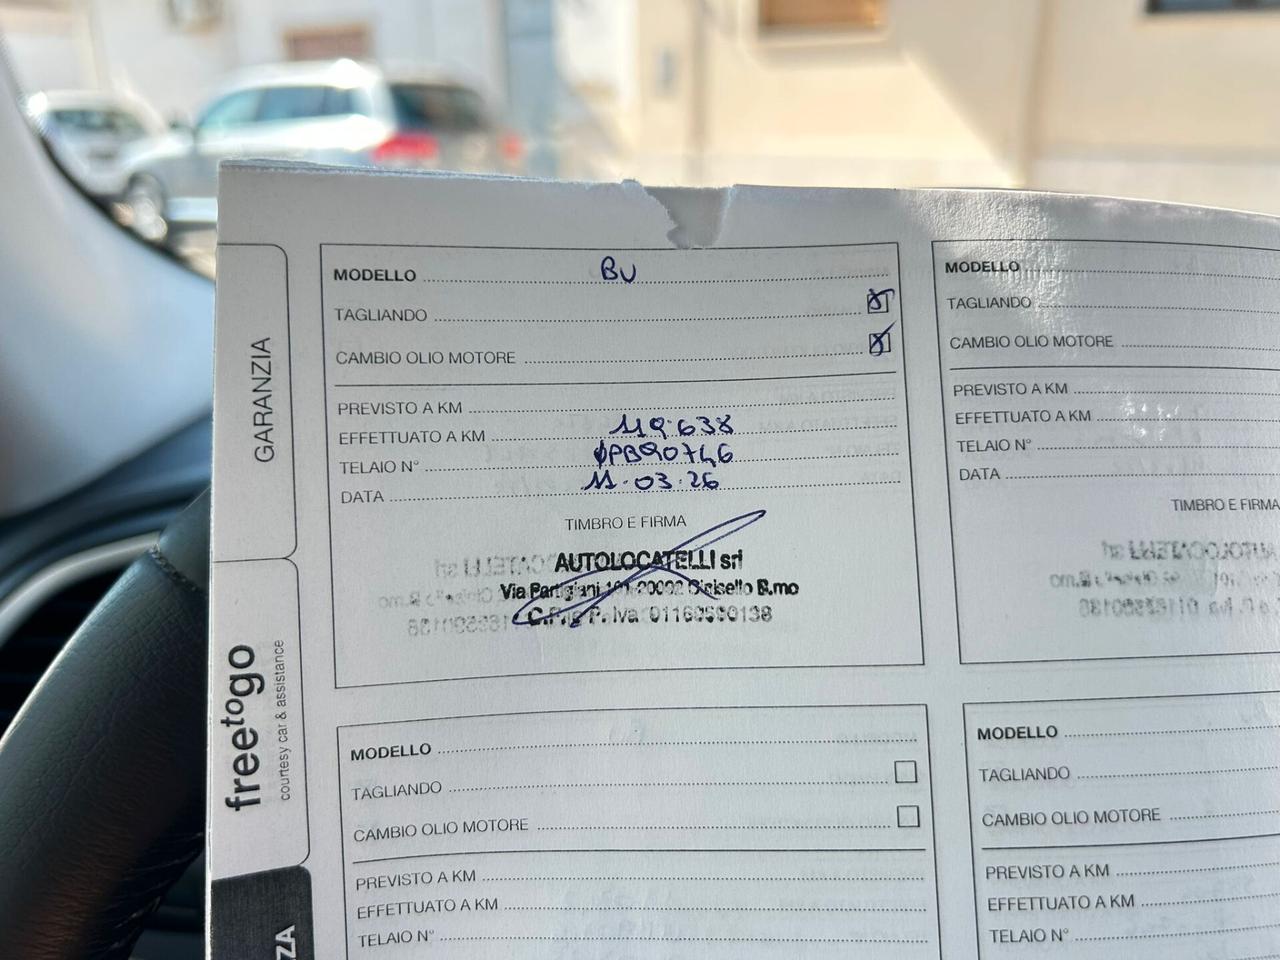 GARANZIA
freetogo
courtesy car & assistance
ZA
MODELLO BU
TAGLIANDO
CAMBIO OLIO MOTORE
PREVISTO A KM
EFFETTUATO A KM 119.638
TELAIO N° ØPB90746
DATA 11.03.26
TIMBRO E FIRMA
AUTOLOCATELLI srl
Via Partigiani 20092 Cinisello B.mo
C.F. e P. Iva
MODELLO
TAGLIANDO
CAMBIO OLIO MOTORE
PREVISTO A KM
EFFETTUATO A KM
TELAIO N°
DATA
TIMBRO E FIRMA
MODELLO
TAGLIANDO
CAMBIO OLIO MOTORE
PREVISTO A KM
EFFETTUATO A KM
TELAIO N°
MODELLO
TAGLIANDO
CAMBIO OLIO MOTORE
PREVISTO A KM
EFFETTUATO A KM
TELAIO N°